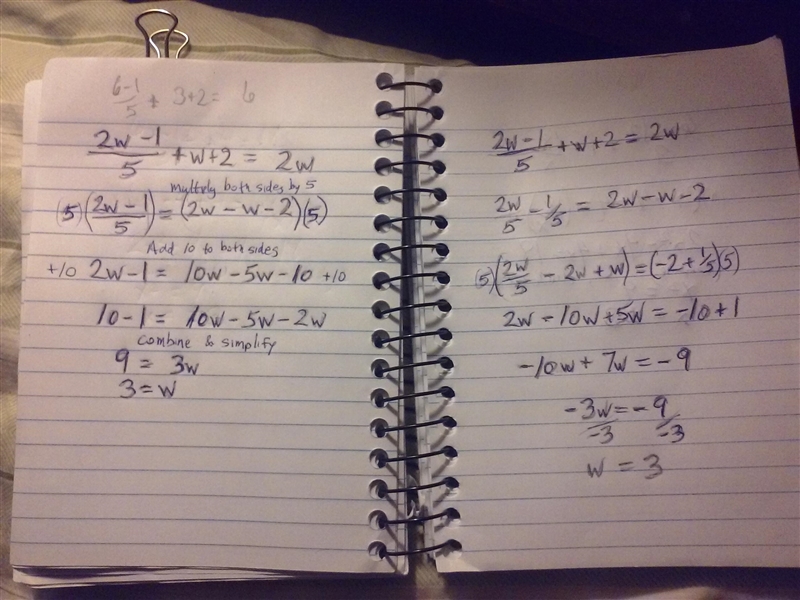 6-1/5 + 3+2 = 6
2w-1/5 + w+2 = 2w
multiply both sides by 5
(5)(2w-1/5) = (2w-w-2)(5)
Add 10 to both sides
+10 2w-1 = 10w-5w-10 +10
10-1 = 10w-5w-2w
combine & simplify
9 = 3w
3=w
2w-1/5 + w+2 = 2w
2w/5 - 1/5 = 2w-w-2
(5)(2w/5 - 2w + w) = (-2+1/5)(5)
2w-10w+5w = -10+1
-10w + 7w = -9
-3w/-3 = -9/-3
w = 3